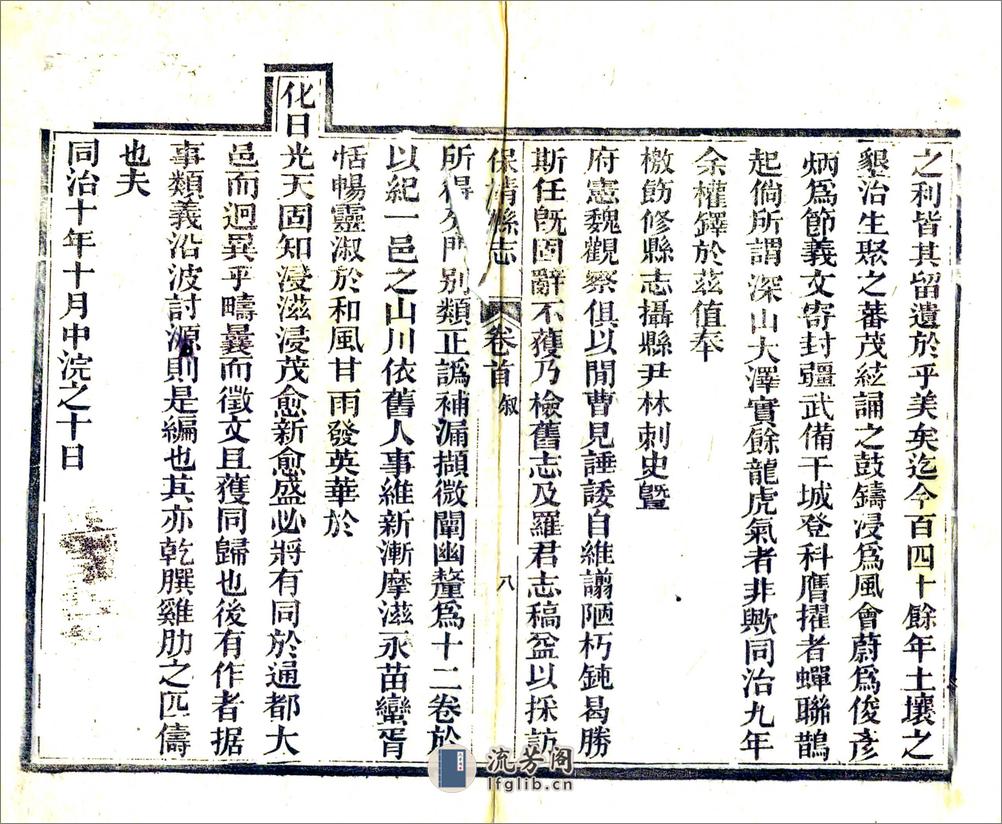 之利皆其留遺於乎美矣迄今百四十餘年土壤之
墾治生聚之蕃茂絃誦之鼓鑄浸爲風會蔚爲俊彦
炳爲節義文寄封疆武備干城登科膺擢者蟬聯鵲
起倘所謂深山大澤實餘龍虎氣者非歟同治九年
余權鐸於茲值奉
檄飭修縣志攝縣尹林刺史曁
府憲魏觀察俱以閒曹見諈諉自維譾陋朽鈍曷勝
斯任旣固辭不獲乃檢舊志及羅君志稿益以採訪
保靖縣志 卷首 敘 八
所得分門別類正譌補漏擷微闡幽釐爲十二卷於
以紀一邑之山川依舊人事維新漸摩滋永苗蠻胥
恬暢靈淑於和風甘雨發英華於
化日光天固知浸滋浸茂愈新愈盛必將有同於通都大
邑而迥異乎疇曩而徵文且獲同歸也後有作者据
事類義沿波討源則是編也其亦乾腜雞肋之匹儔
也夫
同治十年十月中浣之十日
流芳阁
lfglib.cn